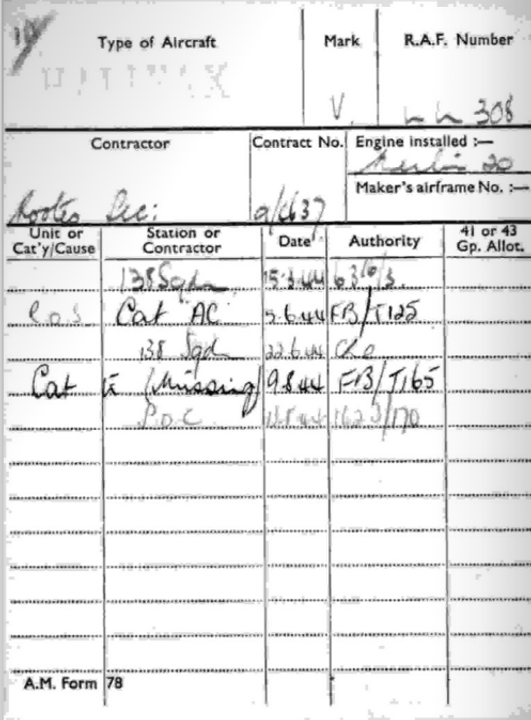 Type of Aircraft Mark R.A.F. Number
HALIFAX V. LL 308
Contractor Contract No. Engine installed :—
Merlin 20
Maker's airframe No. :—
Rootes Sec:
Unit or Cat'y/Cause Station or Contractor Date Authority 41 or 43 Gp. Allot.
138 Sqdn 15.3.44
Cat AC 5.6.44 FB/T125
138 Sqdn 22.6.44
Cat E (Missing) 9.8.44 FB/T165
A.M. Form 78